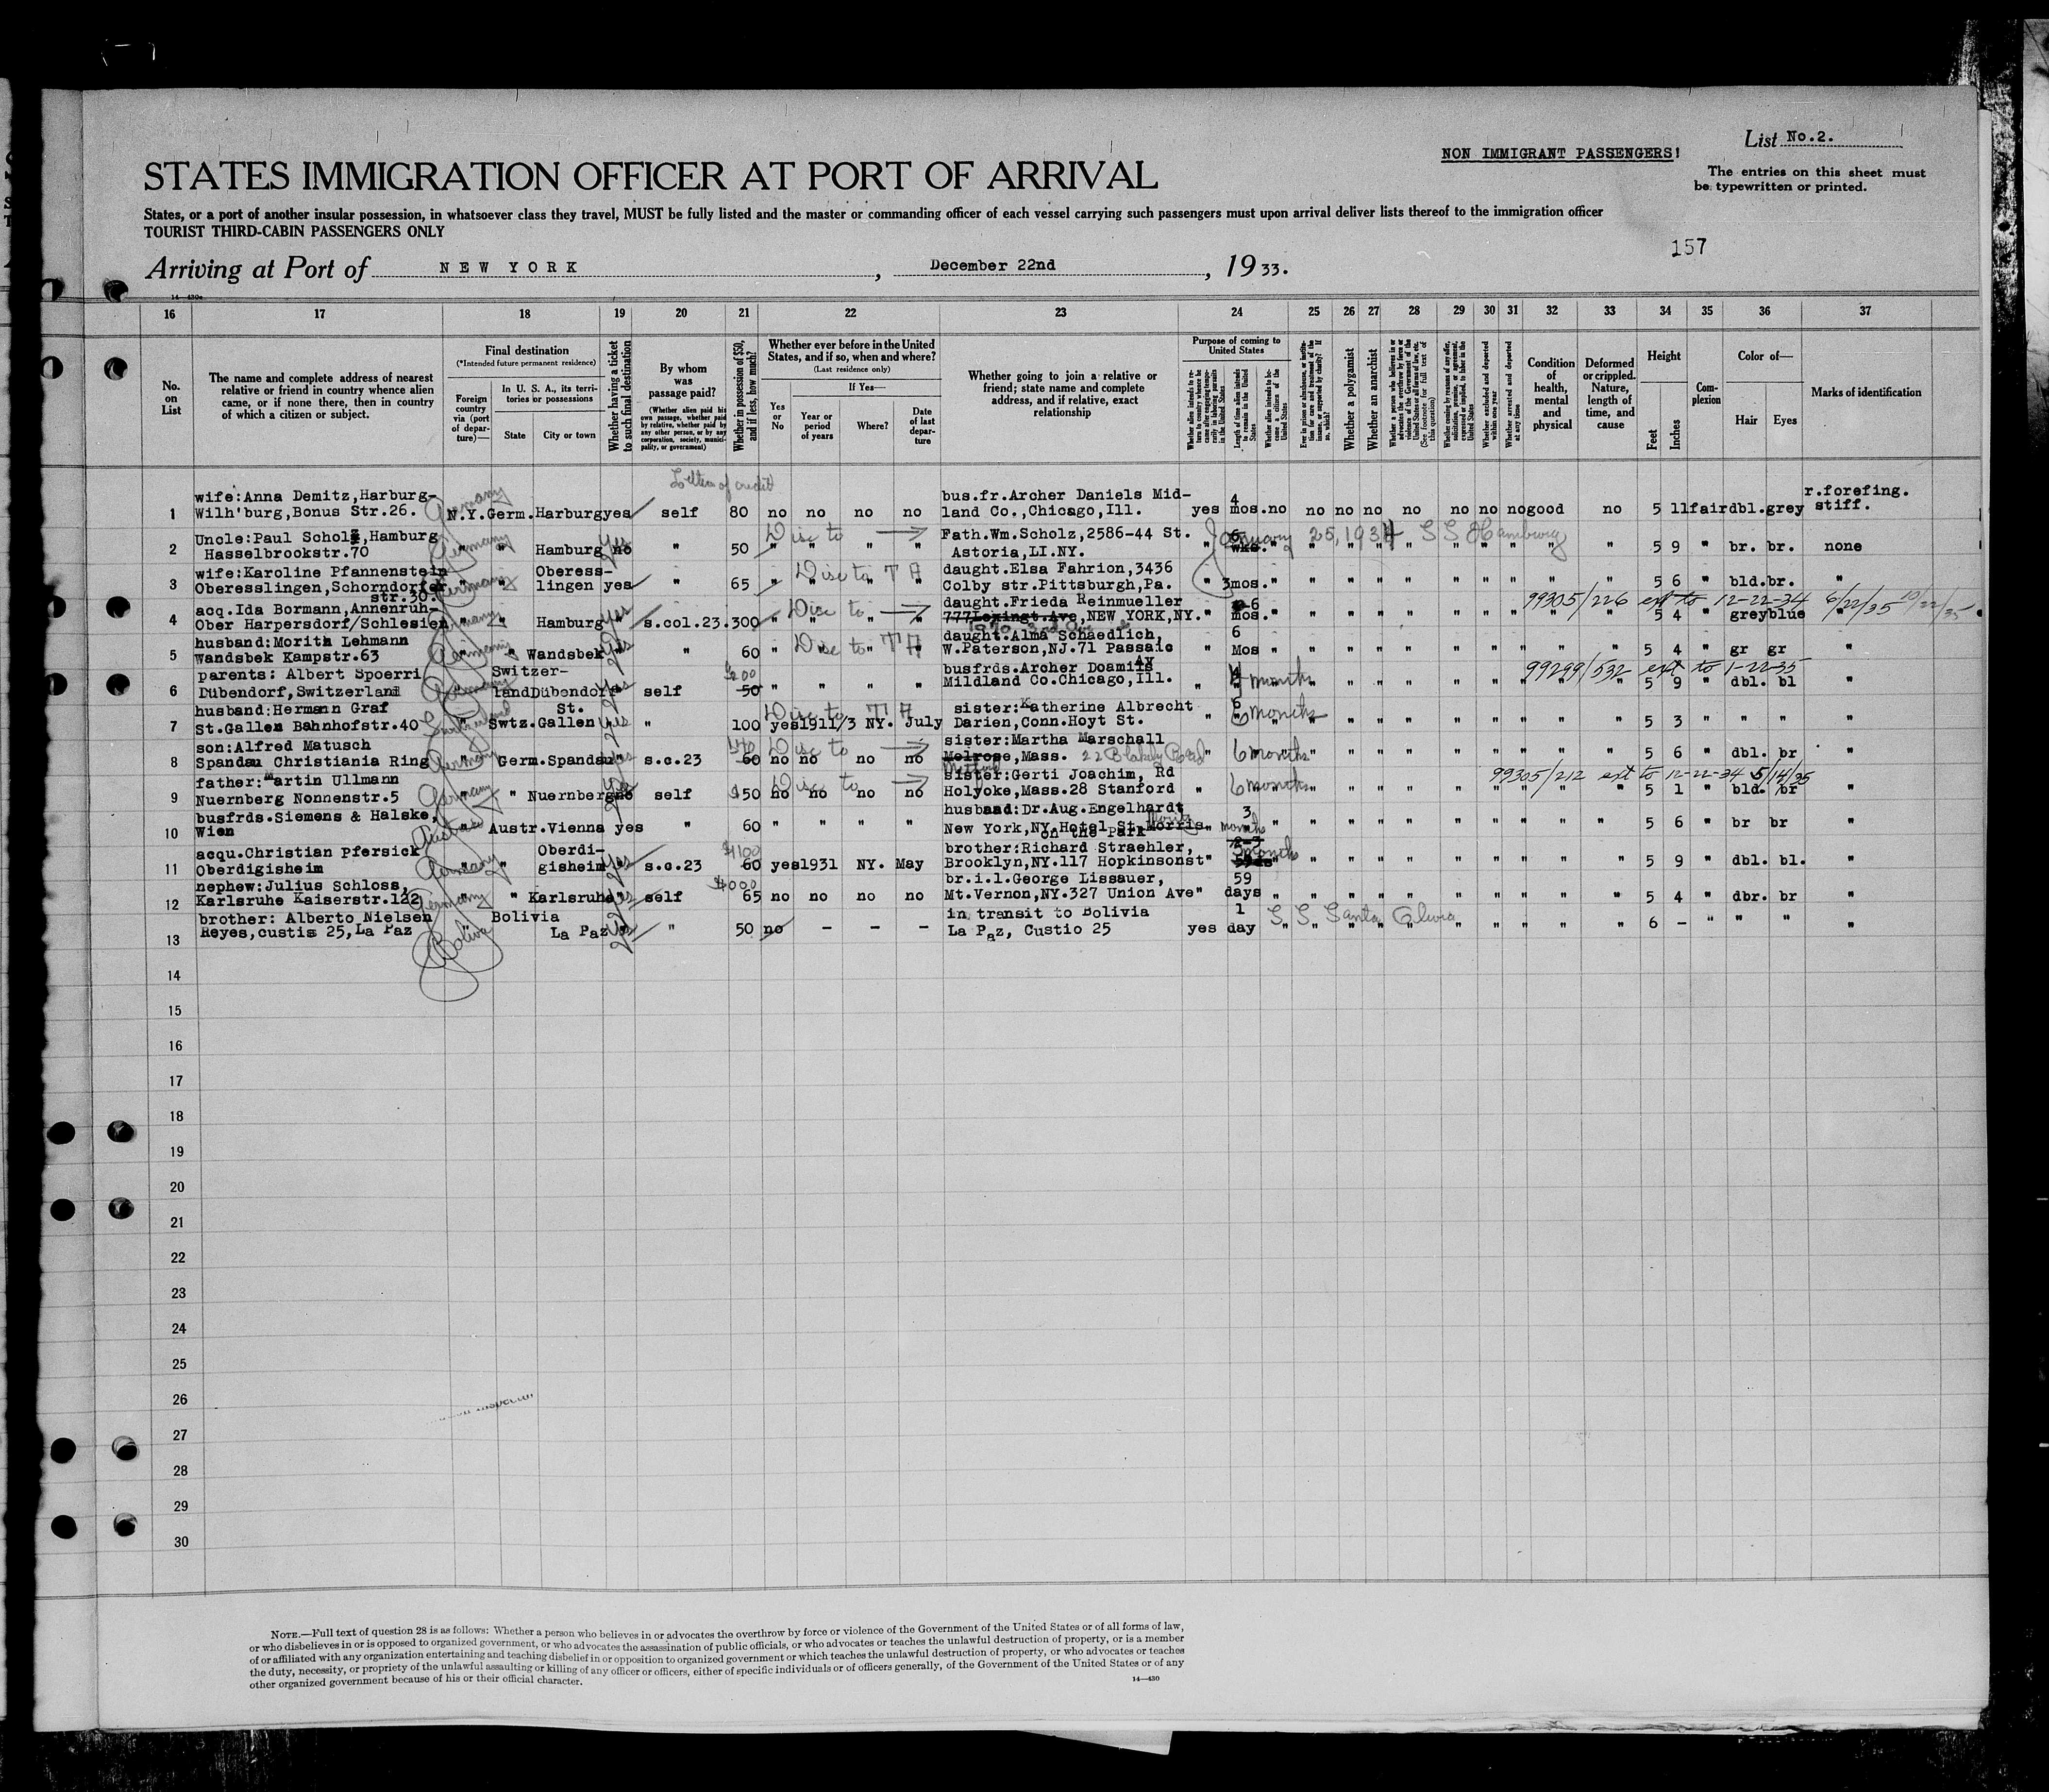 List No.2.
NON IMMIGRANT PASSENGERS!
The entries on this sheet must
be typewritten or printed.
STATES IMMIGRATION OFFICER AT PORT OF ARRIVAL
States, or a port of another insular possession, in whatsoever class they travel, MUST be fully listed and the master or commanding officer of each vessel carrying such passengers must upon arrival deliver lists thereof to the immigration officer
TOURIST THIRD-CABIN PASSENGERS ONLY
157
Arriving at Port of NEW YORK, December 22nd, 1933.
16 17 18 19 20 21 22 23 24 25 26 27 28 29 30 31 32 33 34 35 36 37
No. on List
The name and complete address of nearest relative or friend in country whence alien came, or if none there, then in country of which a citizen or subject.
Final destination
(*Intended future permanent residence)
Foreign country via (port of departure)—
In U. S. A., its territories or possessions
State City or town
Whether having a ticket to such final destination
By whom was passage paid?
(Whether alien paid his own passage, whether paid by relative, whether paid by any other person, or by any corporation, society, municipality, or government)
Whether in possession of $50, and if less, how much?
Whether ever before in the United States, and if so, when and where?
(Last residence only)
If Yes—
Yes or No
Year or period of years
Where?
Date of last departure
Whether going to join a relative or friend; state name and complete address, and if relative, exact relationship
Purpose of coming to United States
Whether a polygamist
Whether an anarchist
Condition of health, mental and physical
Deformed or crippled. Nature, length of time, and cause
Height
Feet Inches
Complexion
Color of—
Hair Eyes
Marks of identification
Letter of credit
wife:Anna Demitz,Harburg- bus.fr.Archer Daniels Mid- 4 r.forefing.
1 Wilh'burg,Bonus Str.26. Germany N.Y. Germ. Harburg yes self 80 no no no no land Co.,Chicago,Ill. yes mos. no no no no no no no no good no 5 11 fair dbl. grey stiff.
Uncle:Paul Scholz,Hamburg Disc to Fath.Wm.Scholz,2586-44 St. January 25,1934 SS Hamburg
2 Hasselbrookstr.70 Germany " " Hamburg no yes " 50 " " " " Astoria,LI.NY. " wks. " 5 9 " br. br. none
wife:Karoline Pfannenstein Oberess- Disc to TA daught.Elsa Fahrion,3436
3 Oberesslingen,Schorndorfer str.30. Germany " " lingen yes " 65 " " " " Colby str.Pittsburgh,Pa. " 3mos. " 5 6 " bld. br. "
acq.Ida Bormann,Annenruh- Disc to daught.Frieda Reinmueller 6 99305/226 ext to 12-22-34 6/22/35 10/22/35
4 Ober Harpersdorf/Schlesien Germany " " Hamburg yes s.col.23. 300 " " " " 777Lexingt.Ave,NEW YORK,NY. " mos. " 5 4 " grey blue "
husband:Morith Lehmann Disc to TA daught.Alma Schaedlich, 6
5 Wandsbek Kampstr.63 " Wandsbek yes " 60 " " " " W.Paterson,NJ.71 Passaic " Mos " 5 4 " gr gr "
parents: Albert Spoerri Switzer- $200 busfrds.Archer Doamils 99299/532 ext to 1-22-35
6 Dübendorf,Switzerland land Dübendorf yes self 50 " " " " Mildland Co.Chicago,Ill. " months " 5 9 " dbl. bl "
husband:Hermann Graf St. Disc to TA sister:Katherine Albrecht 6
7 St.Gallen Bahnhofstr.40 Switzerland Swtz. Gallen yes " 100 yes 1911/3 NY. July Darien,Conn.Hoyt St. 6 months " 5 3 " " " "
son:Alfred Matusch Disc to sister:Martha Marschall
8 Spandau Christiania Ring Germany " Germ. Spandau yes s.c.23 60 no no no no Melrose,Mass. " 6 months " 5 6 " dbl. br "
father:Martin Ullmann Disc to sister:Gerti Joachim, Rd 99305/212 ext to 12-22-34 5/14/35
9 Nuernberg Nonnenstr.5 Germany " Nuernberg no yes self $50 no no no no Holyoke,Mass.28 Stanford " 6 months " 5 1 " bld. br "
busfrds.Siemens & Halske, husband:Dr.Aug.Engelhardt 3
10 Wien Austria Austr. Vienna yes " 60 " " " " New York,NY.Hotel St.Morris on the Park " months " 5 6 " br br "
acqu.Christian Pfersick Oberdi- $100 brother:Richard Straehler, 3 months
11 Oberdigisheim Germany " " gisheim yes s.c.23 60 yes 1931 NY. May Brooklyn,NY.117 Hopkinsonst " " 5 9 " dbl. bl. "
nephew:Julius Schloss, br.i.l.George Lissauer, 59
12 Karlsruhe Kaiserstr.122 Germany " Karlsruhe yes self 65 no no no no Mt.Vernon,NY.327 Union Ave " days " 5 4 " dbr. br "
brother: Alberto Nielsen Bolivia in transit to Bolivia 1 S.S. Santa
13 Reyes,custis 25,La Paz Bolivia La Paz yes " 50 no - - - La Paz, Custio 25 yes day " 6 - " " " "
14
15
16
17
18
19
20
21
22
23
24
25
26
27
28
29
30
NOTE.—Full text of question 28 is as follows: Whether a person who believes in or advocates the overthrow by force or violence of the Government of the United States or of all forms of law,
or who disbelieves in or is opposed to organized government, or who advocates the assassination of public officials, or who advocates or teaches the unlawful destruction of property, or is a member
of or affiliated with any organization entertaining and teaching disbelief in or opposition to organized government or which teaches the unlawful destruction of property, or who advocates or teaches
the duty, necessity, or propriety of the unlawful assaulting or killing of any officer or officers, either of specific individuals or of officers generally, of the Government of the United States or of any
other organized government because of his or their official character.
14—430